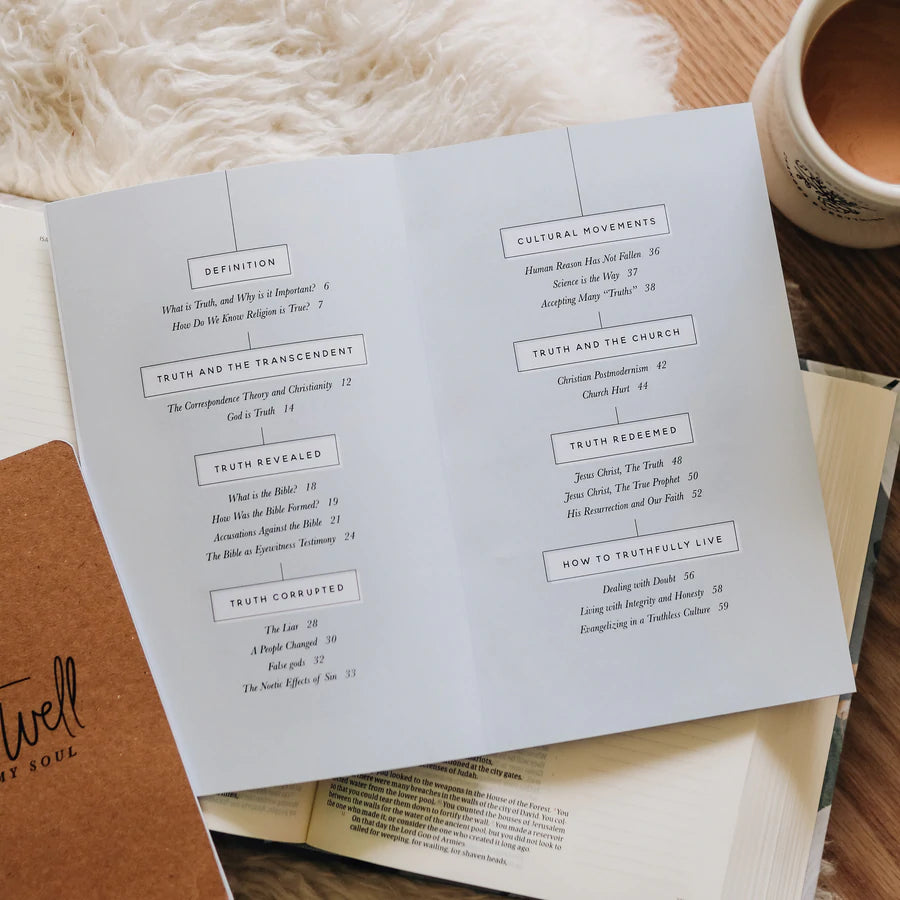 DEFINITION
What is Truth, and Why is it Important? 6
How Do We Know Religion is True? 7
TRUTH AND THE TRANSCENDENT
The Correspondence Theory and Christianity 12
God is Truth 14
TRUTH REVEALED
What is the Bible? 18
How Was the Bible Formed? 19
Accusations Against the Bible 21
The Bible as Eyewitness Testimony 24
TRUTH CORRUPTED
The Liar 28
A People Changed 30
False gods 32
The Noetic Effects of Sin 33
CULTURAL MOVEMENTS
Human Reason Has Not Fallen 36
Science is the Way 37
Accepting Many “Truths” 38
TRUTH AND THE CHURCH
Christian Postmodernism 42
Church Hurt 44
TRUTH REDEEMED
Jesus Christ, The Truth 48
Jesus Christ, The True Prophet 50
His Resurrection and Our Faith 52
HOW TO TRUTHFULLY LIVE
Dealing with Doubt 56
Living with Integrity and Honesty 58
Evangelizing in a Truthless Culture 59
well
MY SOUL
at the city gates.
of Judah.
you looked to the weapons in the House of the Forest. You
there were many breaches in the walls of the city of David. You col-
water from the lower pool. You counted the houses of Jerusalem
so that you could tear them down to fortify the wall. You made a reservoir
between the walls for the water of the ancient pool, but you did not look to
the one who made it, or consider the one who created it long ago.
On that day the Lord GOD of Armies
called for weeping, for wailing, for shaven heads,